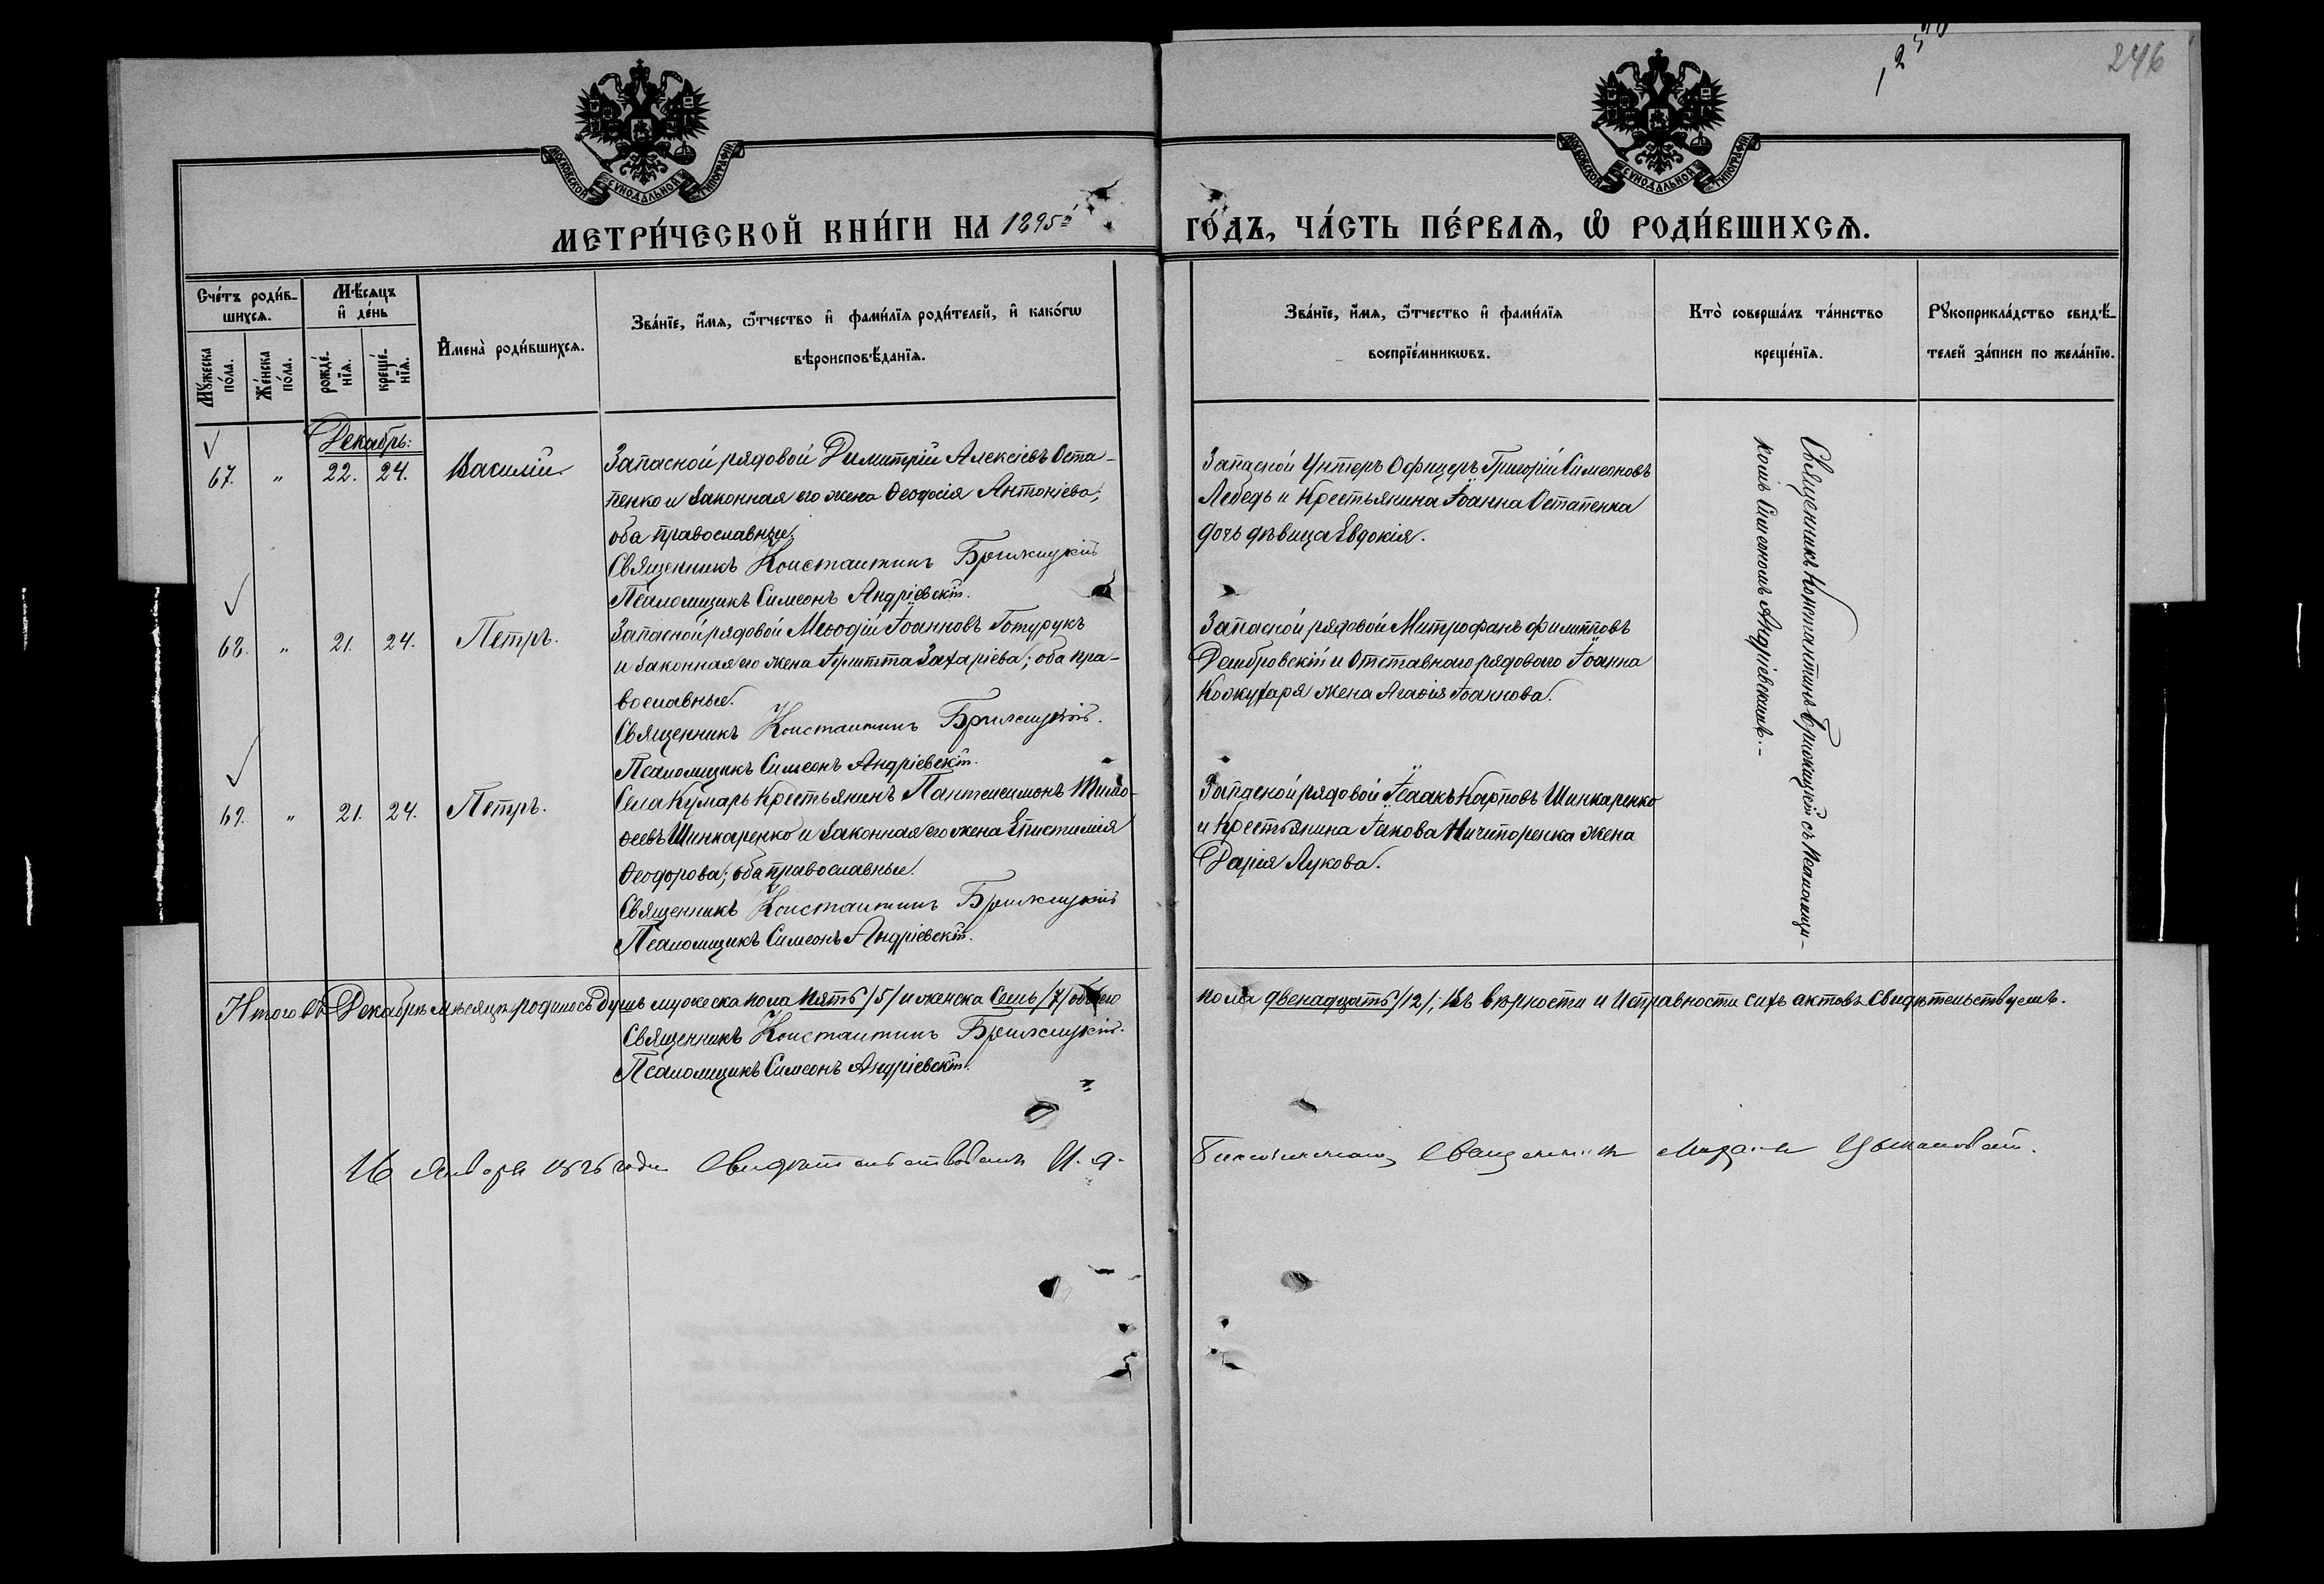 246
МОСКОВСКОЙ СѴНОДАЛЬНОЙ ТИПОГРАФІИ
МОСКОВСКОЙ СѴНОДАЛЬНОЙ ТИПОГРАФІИ
МЕТРИ́ЧЕСКОЙ КНИ́ГИ НА 1895й
ГО́ДЪ, ЧА́СТЬ ПЕ́РВАѦ, Ѡ҆ РОДИ́ВШИХСѦ.
Сче́тъ роди́в-
шихсѧ.
Мѣ́сѧцъ
и҆ де́нь
Мꙋ́жеска
по́ла.
Же́нска
по́ла.
рожде́-
нїѧ.
креще́-
нїѧ.
И҆мена̀ роди́вшихсѧ.
Зва́нїе, и҆́мѧ, ѻ҆́тчество и҆ фами́лїѧ роди́телей, и҆ како́гѡ
вѣроисповѣ́данїѧ.
Зва́нїе, и҆́мѧ, ѻ҆́тчество и҆ фами́лїѧ
воспрїе́мникѡвъ.
Кто̀ соверша́лъ та́инство
креще́нїѧ.
Рꙋкоприкла́дство свидѣ́-
телей за́писи по жела́нїю.
Декабрь:
67. " 22. 24. Василій.
Запасной рядовой Димитрій Алексіевъ Оста-
пенко и законная его жена Ѳеодосія Антоніева;
оба православные.
Священникъ Константинъ Брижицкій
Псаломщикъ Симеонъ Андріевскій.
Запасной Унтеръ Офицеръ Григорій Симеоновъ
Лебедь и Крестьянина Іоанна Остапенка
дочь дѣвица Евдокія.
68. " 21. 24. Петръ.
Запасной рядовой Меѳодій Іоанновъ Готурукъ
и законная его жена Агриппа Захаріева; оба пра-
вославные.
Священникъ Константинъ Брижицкій.
Псаломщикъ Симеонъ Андріевскій.
Запасной рядовой Митрофанъ Филипповъ
Домбровскій и Отставнаго рядового Іоанна
жена Агаѳія Іоаннова.
69. " 21. 24. Петръ.
Села Кумарь Крестьянинъ Пантелеимонъ Тимо-
ѳеевъ Шинкаренко и законная его жена Епистимія
Ѳеодорова; оба православные.
Священникъ Константинъ Брижицкій
Псаломщикъ Симеонъ Андріевскій.
Запасной рядовой Ісаакъ Карповъ Шинкаренко
и Крестьянина Іакова Ничипоренка жена
Дарія Лукова.
Священникъ Константинъ Брижицкій съ Псаломщи-
комъ Симеономъ Андріевскимъ.-
Итого въ Декабрѣ мѣсяцѣ родилось душъ мужеска пола пять /5/ и женска семь /7/ обоего
пола двенадцать /12/; Въ вѣрности и исправности сихъ актовъ свидѣтельствуемъ.
Священникъ Константинъ Брижицкій.
Псаломщикъ Симеонъ Андріевскій.
16 Января 1896 года Свидѣтельствовалъ И. д.
Благочиннаго, Священникъ